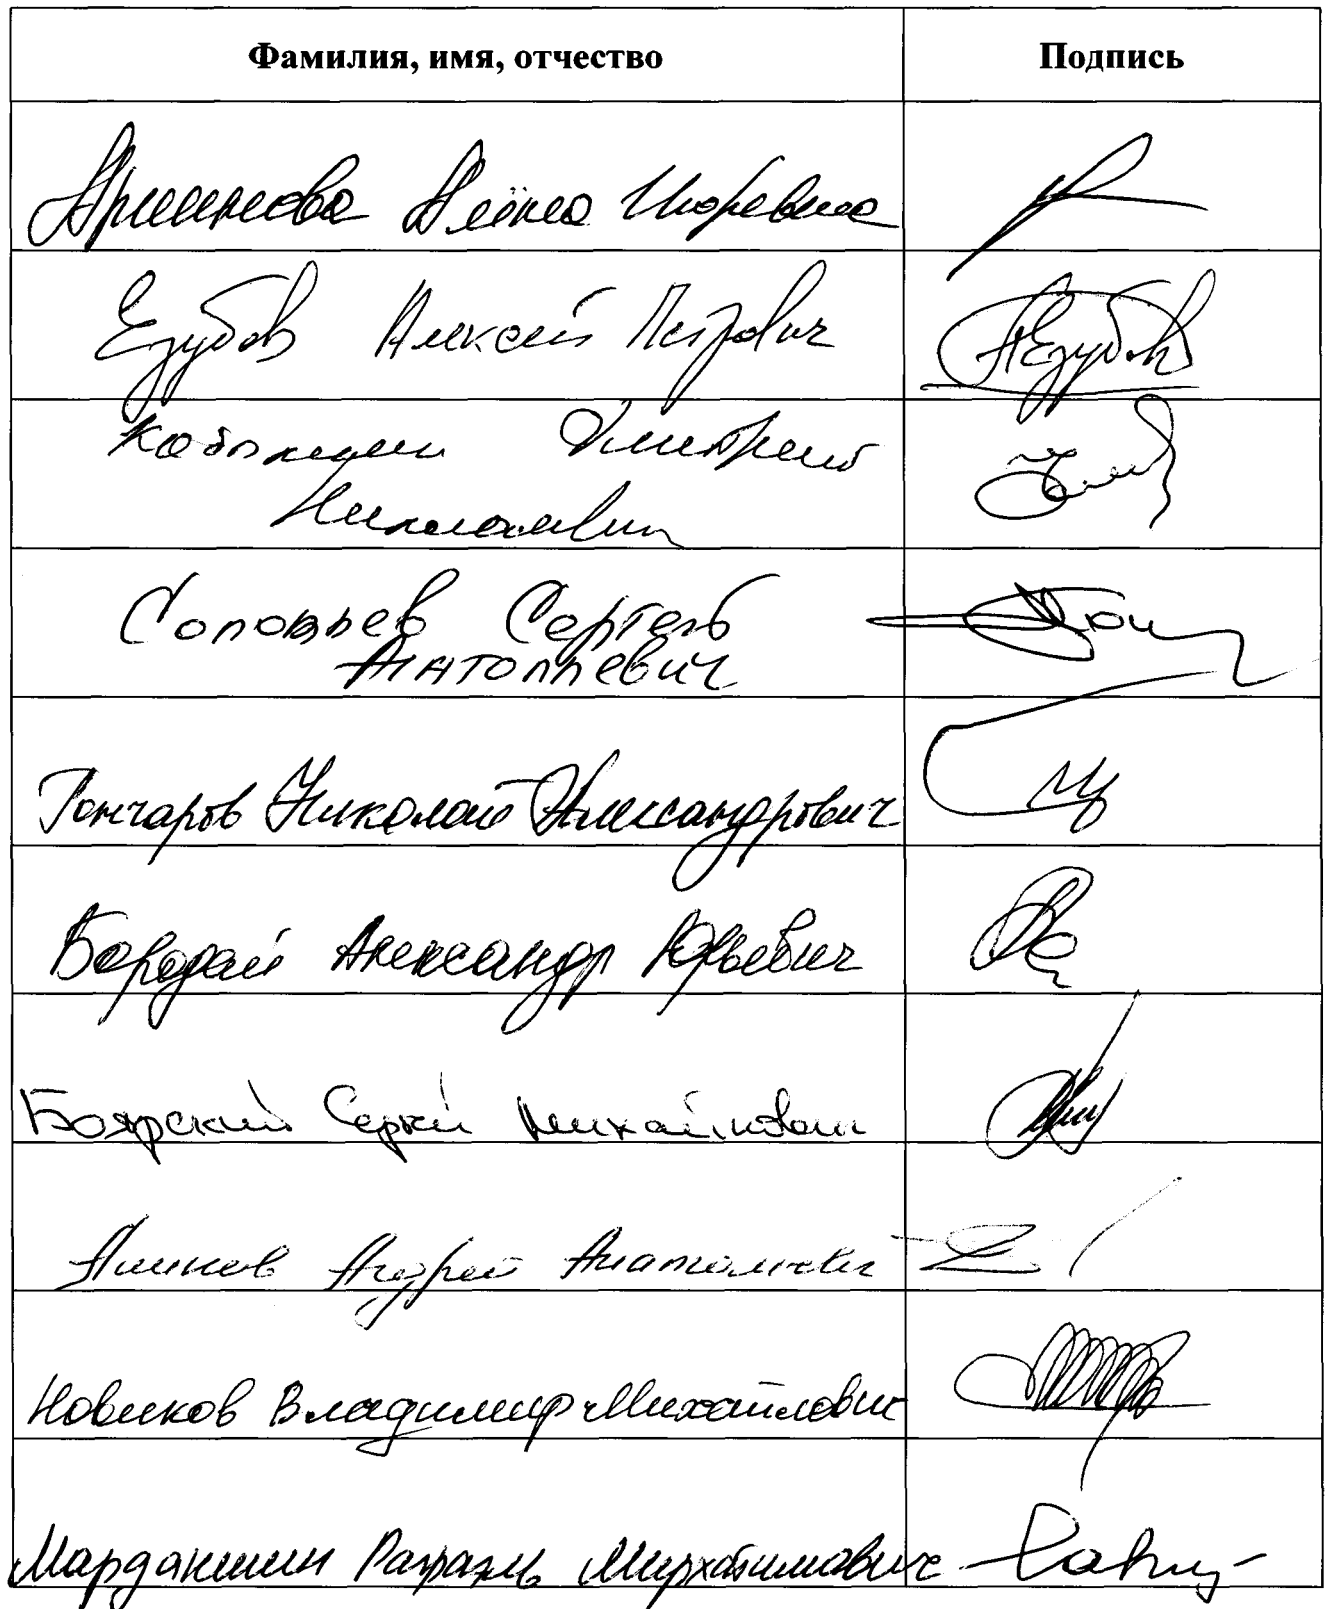 Фамилия, имя, отчество Подпись
Аршинова Алёна Игоревна
Езубов Алексей Петрович АЕзубов
Кобылкин Дмитрий
Николаевич
Соловьев Сергей
Анатольевич
Гончаров Николай Александрович
Бородай Александр Юрьевич
Боярский Сергей Михайлович
Алшнов Андрей Анатольевич
Новиков Владимир Михайлович
Марданшин Рафаэль Мирхатимович